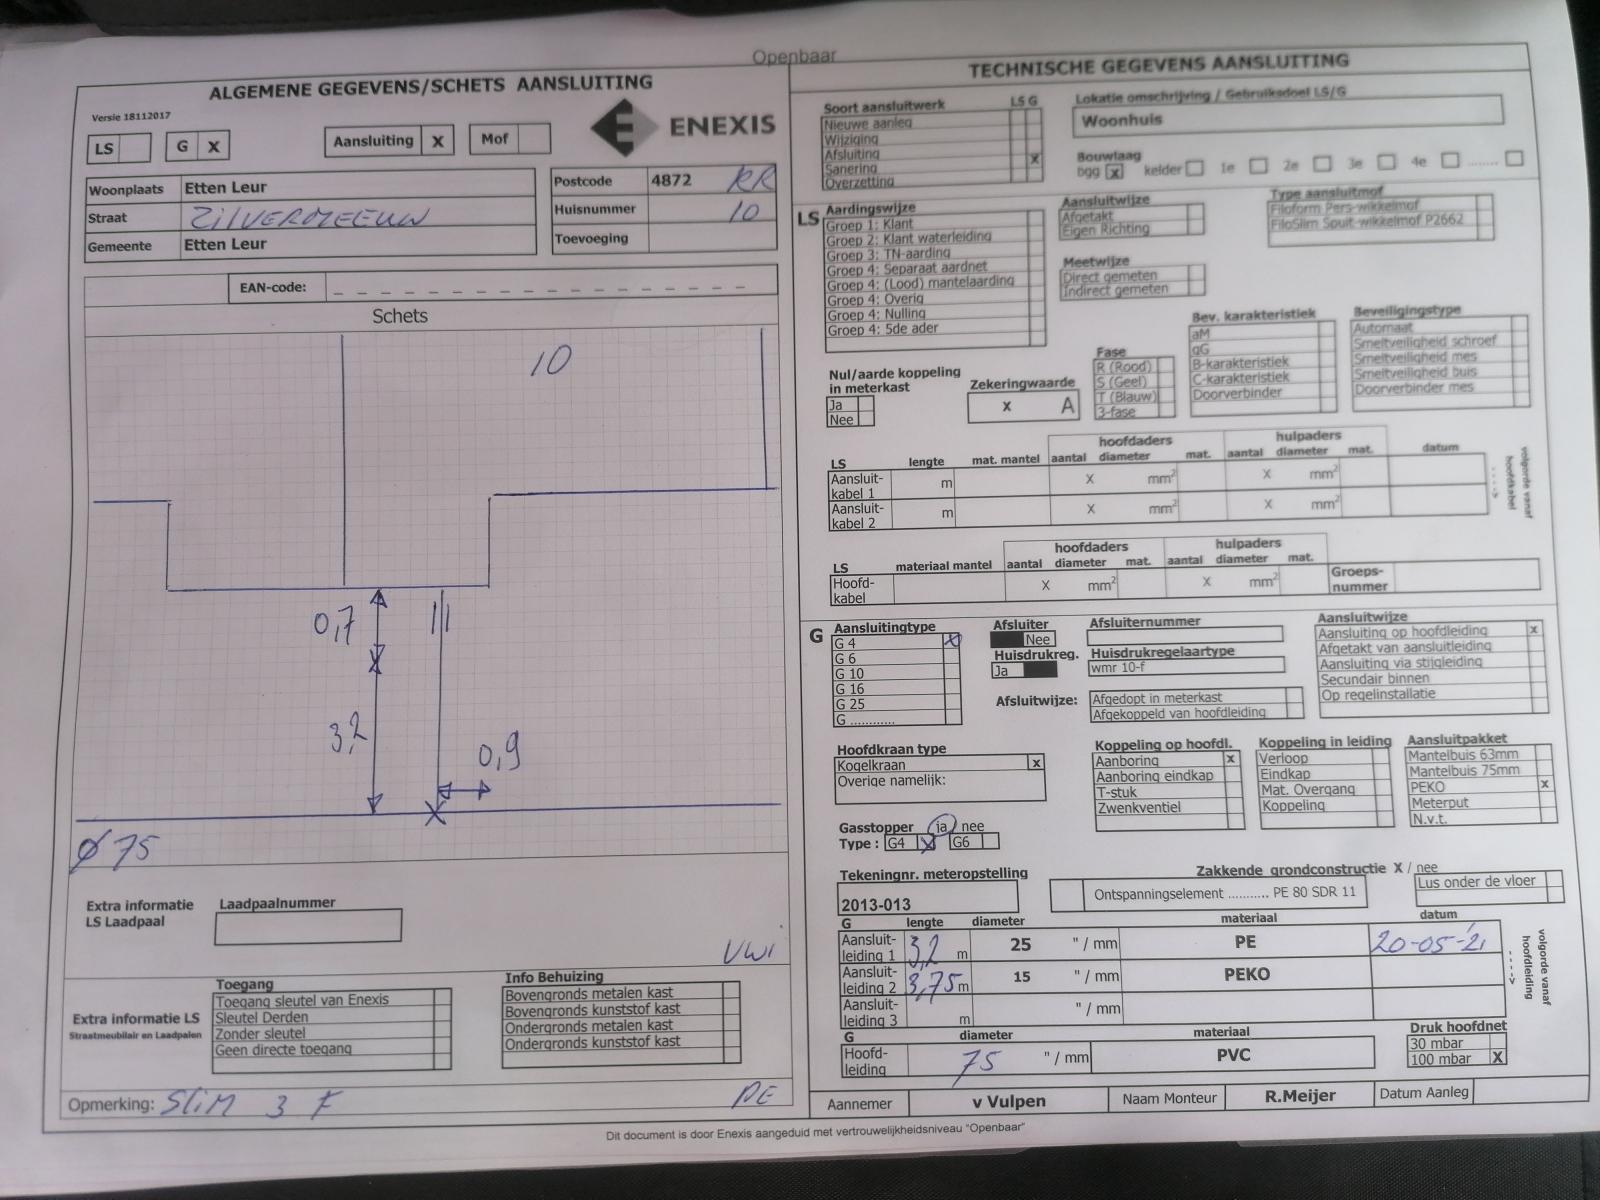 Openbaar
ALGEMENE GEGEVENS/SCHETS AANSLUITING
Versie 18112017
LS
G X
Aansluiting X
Mof
ENEXIS
Woonplaats Etten Leur
Straat ZILVERMEEUW
Gemeente Etten Leur
Postcode 4872 RR
Huisnummer 10
Toevoeging
EAN-code: _ _ _ _ _ _ _ _ _ _ _ _ _ _ _ _ _ _
Schets
10
0,7
3,2
0,9
Ø 75
Extra informatie
LS Laadpaal
Laadpaalnummer
VWI
Extra informatie LS
Straatmeubilair en Laadpalen
Toegang
Toegang sleutel van Enexis
Sleutel Derden
Zonder sleutel
Geen directe toegang
Info Behuizing
Bovengronds metalen kast
Bovengronds kunststof kast
Ondergronds metalen kast
Ondergronds kunststof kast
Opmerking: SLIM 3 F
PE
TECHNISCHE GEGEVENS AANSLUITING
Soort aansluitwerk LS G
Nieuwe aanleg
Wijziging
Afsluiting
Sanering X
Overzetting
Lokatie omschrijving / Gebruiksdoel LS/G
Woonhuis
Bouwlaag
bgg x kelder 1e 2e 3e 4e ........
LS
Aardingswijze
Groep 1: Klant
Groep 2: Klant waterleiding
Groep 3: TN-aarding
Groep 4: Separaat aardnet
Groep 4: (Lood) mantelaarding
Groep 4: Overig
Groep 4: Nulling
Groep 4: 5de ader
Aansluitwijze
Afgetakt
Eigen Richting
Type aansluitmof
Filoform Pers-wikkelmof
FiloSlim Spuit-wikkelmof P2662
Meetwijze
Direct gemeten
Indirect gemeten
Nul/aarde koppeling
in meterkast
Ja
Nee
Zekeringwaarde
x A
Fase
R (Rood)
S (Geel)
T (Blauw)
3-fase
Bev. karakteristiek
aM
gG
B-karakteristiek
C-karakteristiek
Doorverbinder
Beveiligingstype
Automaat
Smeltveiligheid schroef
Smeltveiligheid mes
Smeltveiligheid buis
Doorverbinder mes
hoofdaders hulpaders
LS lengte mat. mantel aantal diameter mat. aantal diameter mat. datum
Aansluit-
kabel 1 m X mm2 X mm2
Aansluit-
kabel 2 m X mm2 X mm2
volgorde vanaf
hoofdkabel
---->
hoofdaders hulpaders
LS materiaal mantel aantal diameter mat. aantal diameter mat.
Hoofd-
kabel X mm2 X mm2
Groeps-
nummer
G
Aansluitingtype
G 4 X
G 6
G 10
G 16
G 25
G ............
Afsluiter
Nee
Afsluiternummer
Huisdrukreg.
Ja
Huisdrukregelaartype
wmr 10-f
Afsluitwijze:
Afgedopt in meterkast
Afgekoppeld van hoofdleiding
Aansluitwijze
Aansluiting op hoofdleiding x
Afgetakt van aansluitleiding
Aansluiting via stijgleiding
Secundair binnen
Op regelinstallatie
Hoofdkraan type
Kogelkraan x
Overige namelijk:
Koppeling op hoofdl.
Aanboring x
Aanboring eindkap
T-stuk
Zwenkventiel
Koppeling in leiding
Verloop
Eindkap
Mat. Overgang
Koppeling
Aansluitpakket
Mantelbuis 63mm
Mantelbuis 75mm
PEKO x
Meterput
N.v.t.
Gasstopper ja / nee
Type : G4 X G6
Tekeningnr. meteropstelling
2013-013
Zakkende grondconstructie X / nee
Ontspanningselement ........... PE 80 SDR 11
Lus onder de vloer
G lengte diameter materiaal datum
Aansluit-
leiding 1 3,2 m 25 " / mm PE 20-05-21
Aansluit-
leiding 2 3,75 m 15 " / mm PEKO
Aansluit-
leiding 3 m " / mm
volgorde vanaf
hoofdleiding
---->
G diameter materiaal
Hoofd-
leiding 75 " / mm PVC
Druk hoofdnet
30 mbar
100 mbar X
Aannemer v Vulpen Naam Monteur R.Meijer Datum Aanleg
Dit document is door Enexis aangeduid met vertrouwelijkheidsniveau "Openbaar"